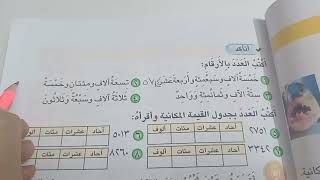 أتأكد
أكْتُبُ العَدَدَ بِالأَرْقَامِ:
خَمْسَةُ آلافٍ وَسَبْعُمِئَةٍ وَأَرْبَعَةَ عَشَرَ تِسعَةُ آلافٍ ومئتانِ وخَمْسَةٌ
سِتَّةُ آلافٍ وثَمانُمِئَةٍ وَوَاحِدٌ ثَلاثَةُ آلافٍ وسَبْعَةٌ وَثَلاثُونَ
أكْتُبُ العَدَدَ بجدولِ القيمة المكانية وأقرأُهُ:
٢٧٥١ آحاد عشرات مئات ألوف ٥٠١٣ آحاد عشرات مئات ألوف
٣٣٤٢ آحاد عشرات مئات ألوف ٨٢٦٠ آحاد عشرات مئات ألوف